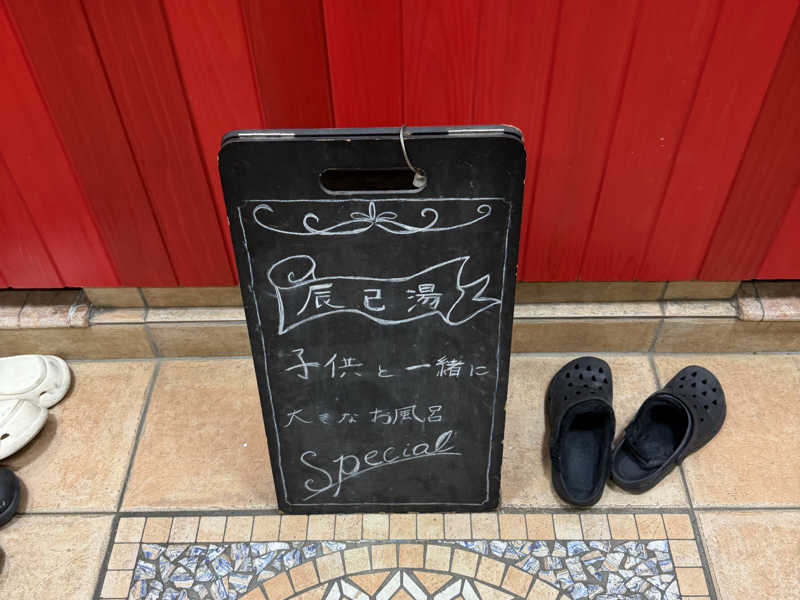 辰己湯
子供と一緒に
大きなお風呂
Special